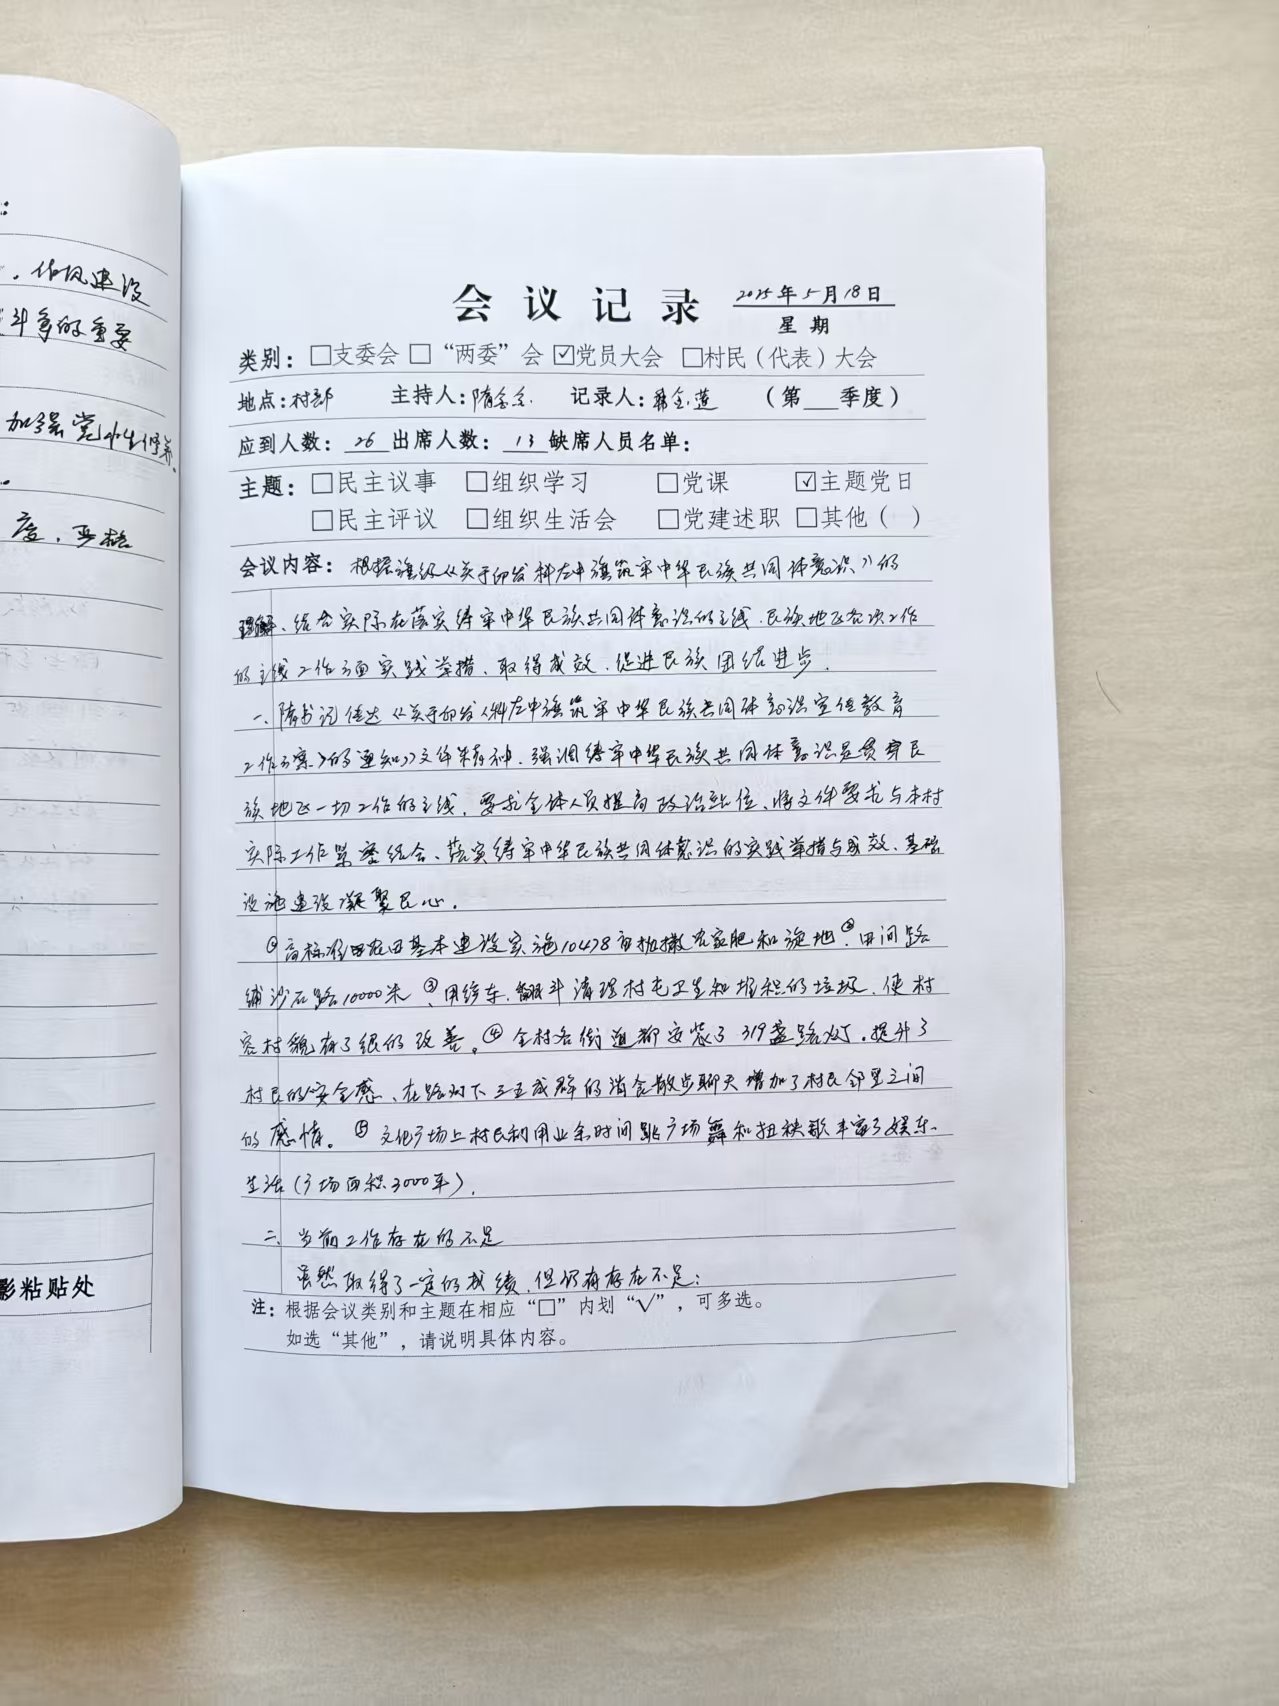 :
，作风建设
斗争的重要
加强党性修养。
度，严格
影粘贴处
会议记录 2025年5月18日
星期
类别：□支委会 □“两委”会 ☑党员大会 □村民（代表）大会
地点：村部 主持人：隋 记录人：金莲 （第___季度）
应到人数：26 出席人数：13 缺席人员名单：
主题：□民主议事 □组织学习 □党课 ☑主题党日
□民主评议 □组织生活会 □党建述职 □其他（ ）
会议内容：根据旗级《关于印发科左中旗筑牢中华民族共同体意识》的
理解、结合实际在落实铸牢中华民族共同体意识的主线，民族地区各项工作
的主线工作方面实践举措、取得成效、促进民族团结进步.
一、隋书记传达《关于印发《科左中旗筑牢中华民族共同体意识宣传教育
工作方案》的通知》文件精神，强调铸牢中华民族共同体意识是贯穿民
族地区一切工作的主线，要求全体人员提高政治站位、将文件要求与本村
实际工作紧密结合、落实铸牢中华民族共同体意识的实践举措与成效、基础
设施建设凝聚民心.
①高标准农田基本建设实施10478亩抛撒农家肥和旋地.②田间路
铺沙石路10000米③、用铲车、翻斗清理村屯卫生和堆积的垃圾、使村
容村貌有了很的改善。④全村各街道都安装了319盏路灯.提升了
村民的安全感、在路灯下三五成群的消食散步聊天增加了村民邻里之间
的感情。⑤文化广场上村民利用业余时间跳广场舞和扭秧歌丰富了娱乐.
生活(广场面积3000平).
二、当前工作存在的不足
虽然取得了一定的成绩，但仍有存在不足：
注：根据会议类别和主题在相应“□”内划“√”，可多选。
如选“其他”，请说明具体内容。